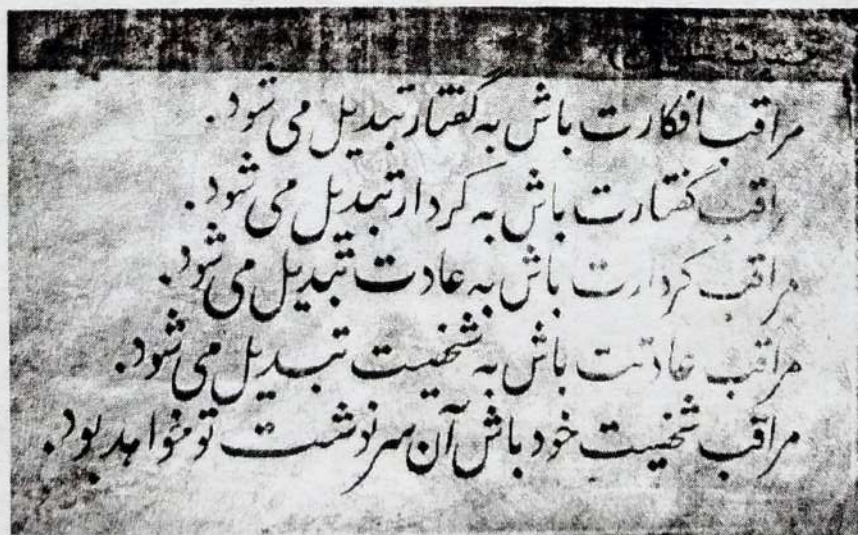 مراقب افکارت باش به گفتار تبدیل می شود.
مراقب گفتارت باش به کردار تبدیل می شود.
مراقب کردارت باش به عادت تبدیل می شود.
مراقب عادتت باش به شخصیت تبدیل می شود.
مراقب شخصیت خود باش آن سرنوشت تو خواهد بود.